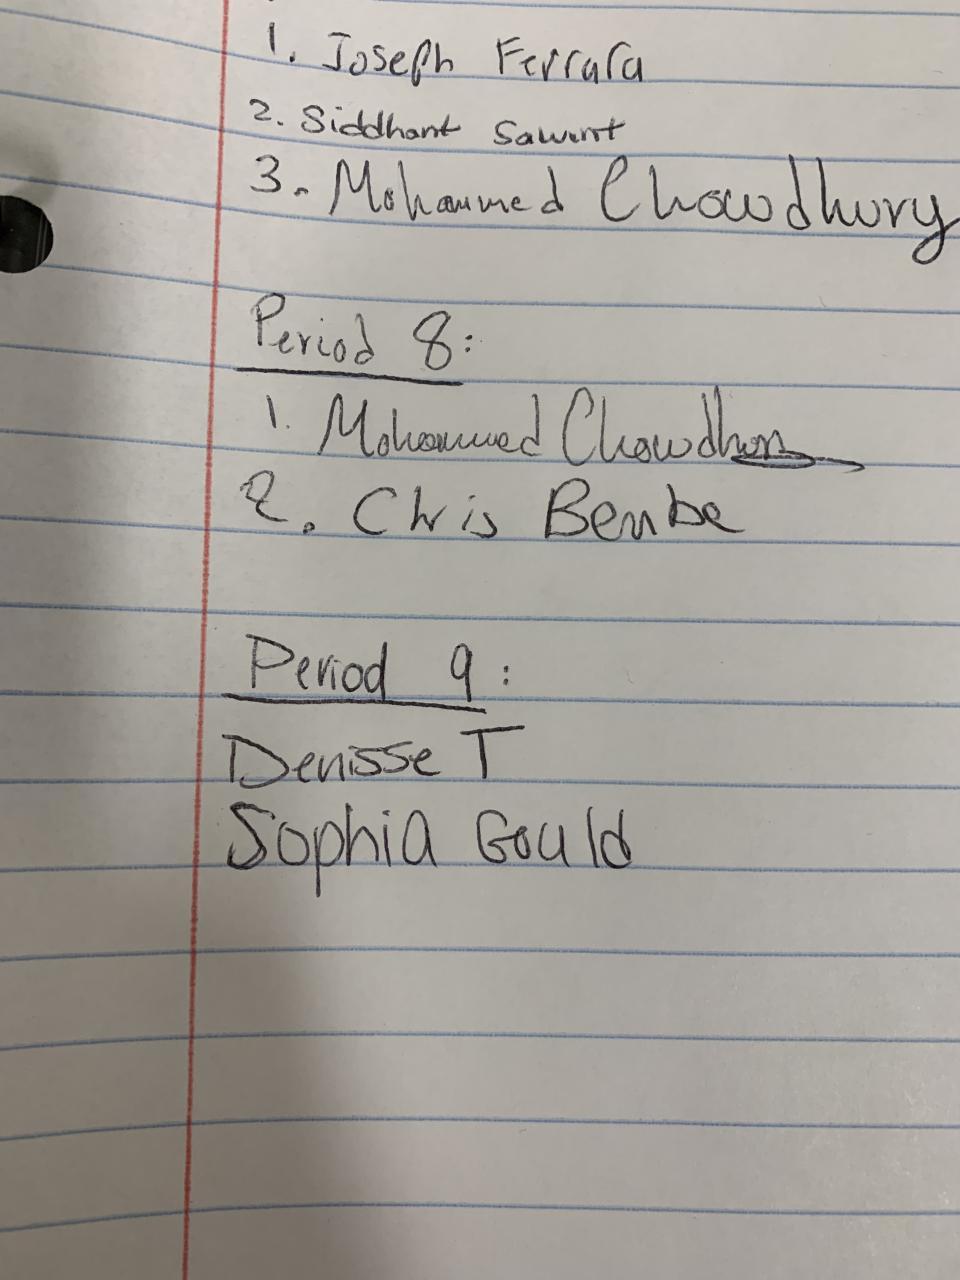 1. Joseph Ferrara
2. Siddhant Sawant
3. Mohammed Chowdhury
Period 8:
1. Mohammed Chowdhury
2. Chris Bembe
Period 9:
Denisse T
Sophia Gould